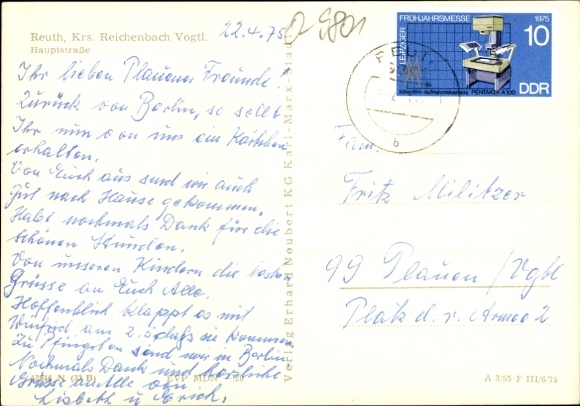 Reuth, Krs. Reichenbach Vogtl.
Hauptstraße
22.4.75
Ihr lieben Plauener Freunde!
Zurück von Berlin, so sollt
Ihr nun von uns ein Kärtchen
erhalten.
Von Euch aus sind wir auch
gut nach Hause gekommen.
Habt nochmals Dank für die
schönen Stunden.
Von unseren Kindern die besten
Grüsse an Euch Alle.
Hoffentlich klappt es mit
am 2.5. daß sie kommen
Zu Pfingsten sind wir in Berlin
Nochmals Dank und herzliche
Grüsse an Alle von
Lisbeth u. Erich.
EVP MDN
Verlag Erhard Neubert KG Karl-Marx-Stadt
LEIPZIGER FRÜHJAHRSMESSE 1975
10
DDR
Mikrofilm-Aufnahmekamera PENTAKTA A 100
REUTH
b
Fam.
Fritz Militzer
99 Plauen/Vgtl
Platz d. r. Armee 2
A 3/65 F III/6/75